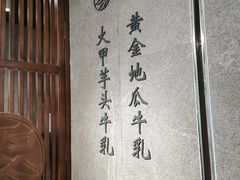 黃金地瓜牛乳
大甲芋头牛乳